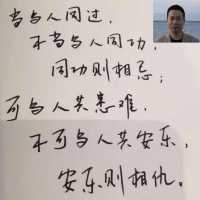 当与人同过，
不当与人同功，
同功则相忌；
可与人共患难，
不可与人共安乐，
安乐则相仇。